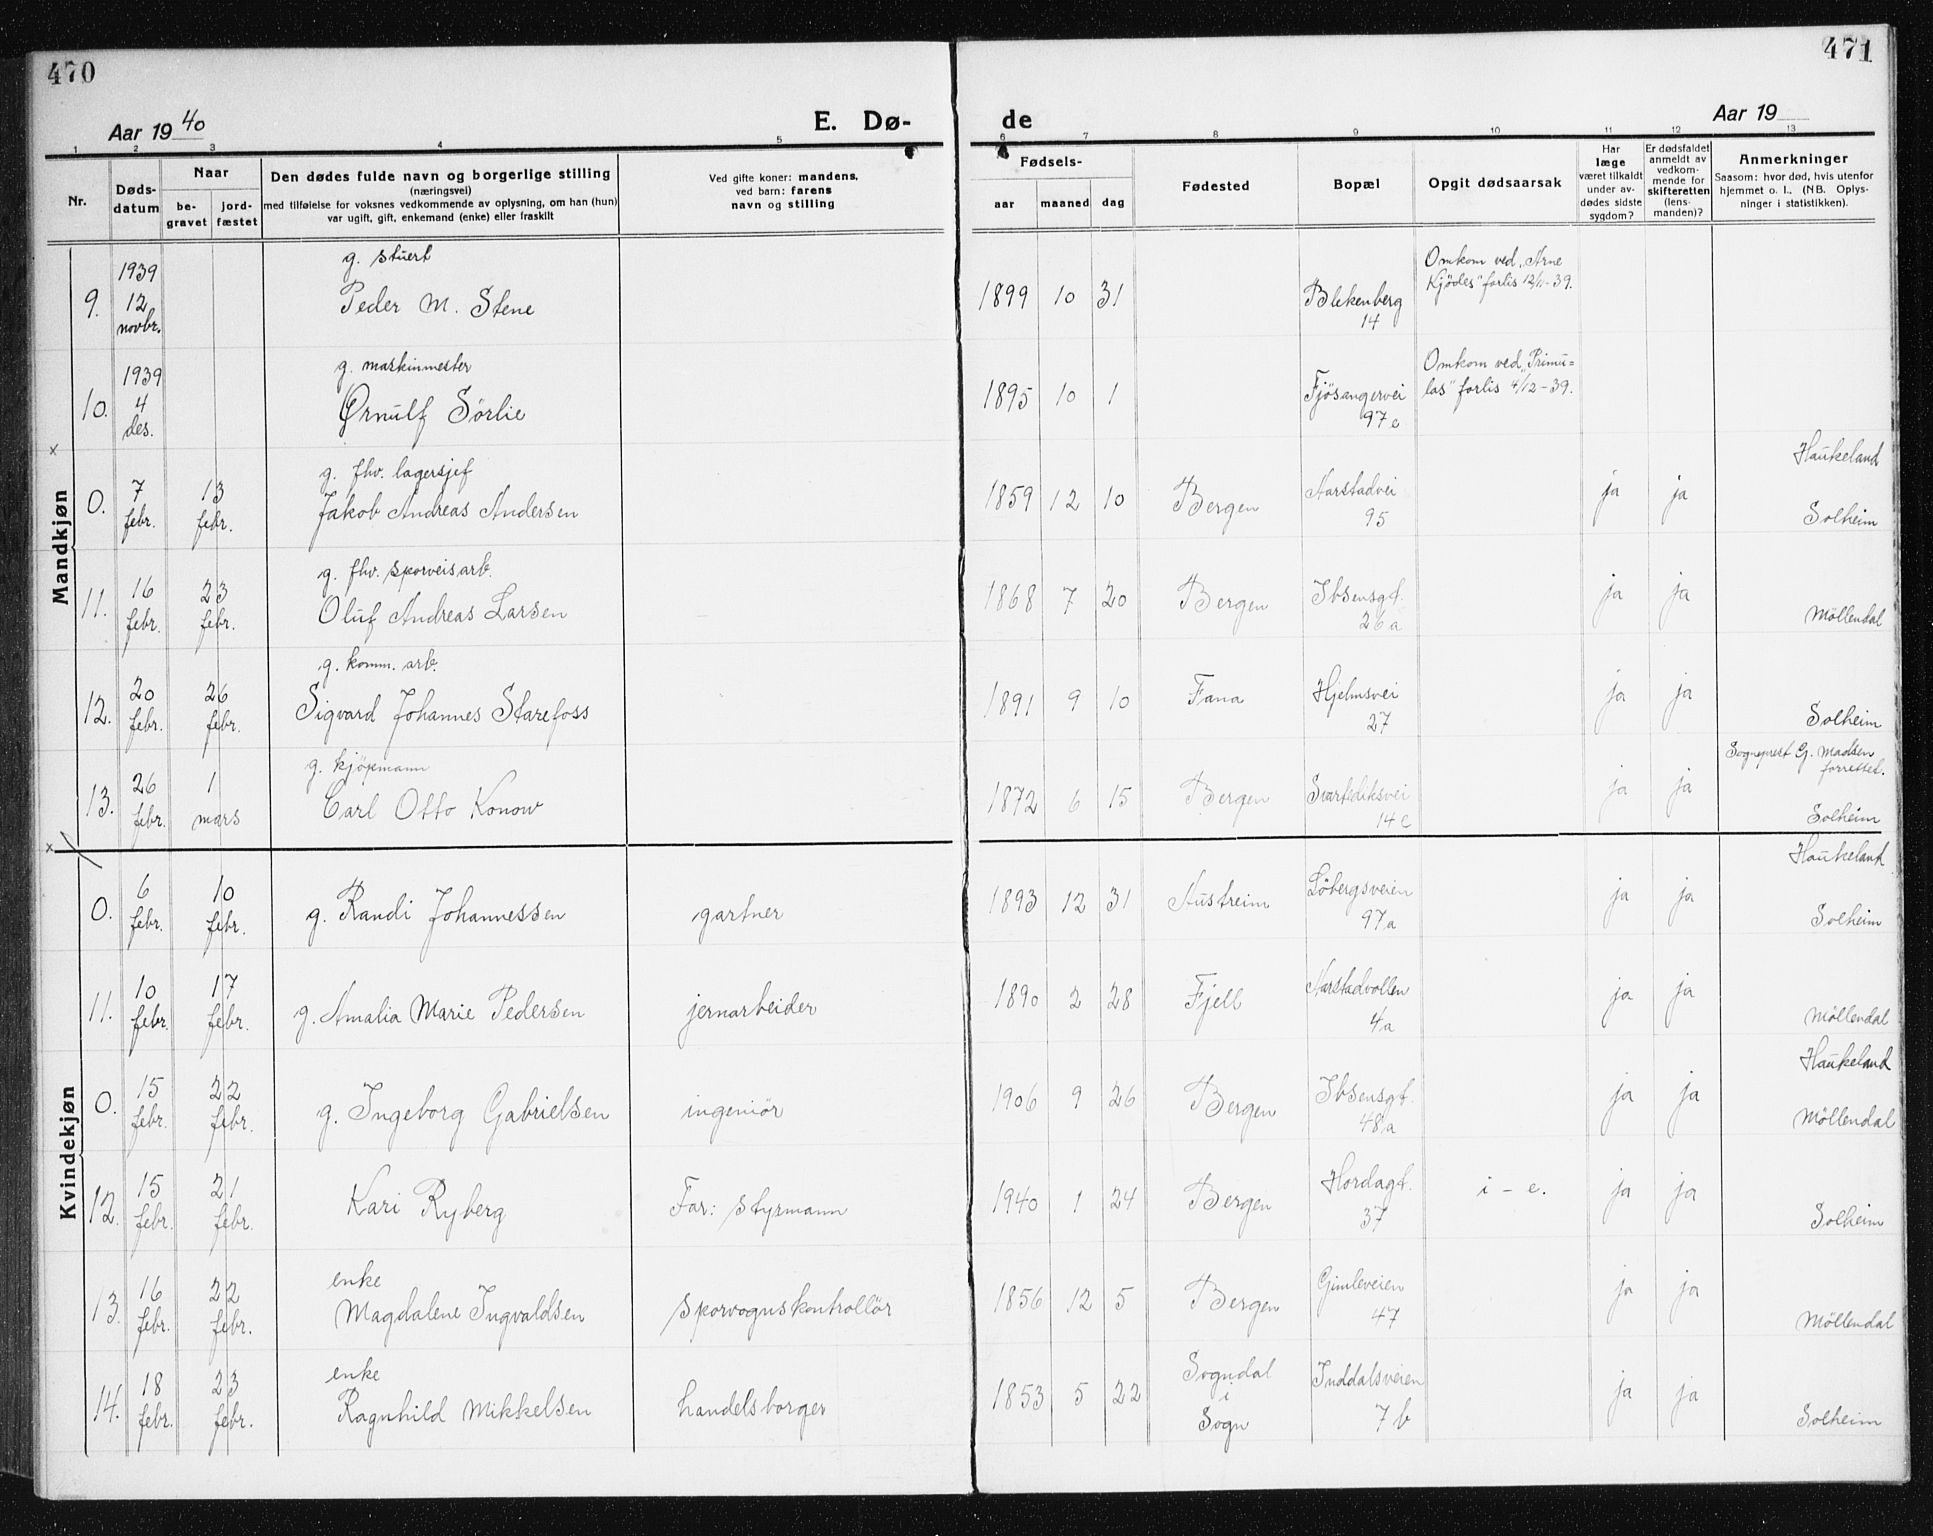 470
471
Aar 1940
E. Dø-
de
Aar 19
1 2 3 4 5 6 7 8 9 10 11 12 13
Nr.
Døds-
datum
Naar
be-
gravet
jord-
fæstet
Den dødes fulde navn og borgerlige stilling
(næringsvei)
med tilføielse for voksnes vedkommende av oplysning, om han (hun)
var ugift, gift, enkemand (enke) eller fraskilt
Ved gifte koner: mandens,
ved barn: farens
navn og stilling
Fødsels-
aar maaned dag
Fødested
Bopæl
Opgit dødsaarsak
Har
læge
været tilkaldt
under av-
dødes sidste
sygdom?
Er dødsfaldet
anmeldt av
vedkom-
mende for
skifteretten
(lens-
manden)?
Anmerkninger
Saasom: hvor død, hvis utenfor
hjemmet o. l., (NB. Oplys-
ninger i statistikken).
Mandkjøn
9. 1939 12 novbr. g. stuert Peder M. Stene 1899 10 31 Blekenberg 14 Omkom ved „Arne Kjödes" forlis 12/11-39.
10. 1939 4 des. g. maskinmester Ørnulf Sörlie 1895 10 1 Fjösangervei 97c Omkom ved „Primu= las" forlis 4/12-39.
x
0. 7 febr. 13 febr. g. fhv. lagersjef Jakob Andreas Andersen 1859 12 10 Bergen Aarstadvei 95 ja ja Haukeland Solheim
11. 16 febr. 23 febr. g. fhv. sporveisarb. Oluf Andreas Larsen 1868 7 20 Bergen Ibsensgt. 26a ja ja Möllendal
12. 20 febr. 26 febr. g. komm. arb. Sigvard Johannes Starefoss 1891 9 10 Fana Hjelmsvei 27 ja ja Solheim
13. 26 febr. 1 mars g. kjöpmann Carl Otto Konow 1872 6 15 Bergen Svartediksvei 14c ja ja Sogneprest G. Madsen forrettet. Solheim
x
Kvindekjøn
0. 6 febr. 10 febr. g. Randi Johannessen gartner 1893 12 31 Austreim Löbergsveien 97a ja ja Haukeland Solheim
11. 10 febr. 17 febr. g. Amalia Marie Pedersen jernarbeider 1890 2 28 Fjell Aarstadvollen 4a ja ja Möllendal
0. 15 febr. 22 febr. g. Ingeborg Gabrielsen ingeniör 1906 9 26 Bergen Ibsensgt. 48a ja ja Haukeland Möllendal
12. 15 febr. 21 febr. Kari Ryberg Far: styrmann 1940 1 24 Bergen Hordagt. 37 i - e. ja ja Solheim
13. 16 febr. 22 febr. enke Magdalene Ingvaldsen sporvognskontrollör 1856 12 5 Bergen Gimleveien 47 ja ja Möllendal
14. 18 febr. 23 febr. enke Ragnhild Mikkelsen handelsborger 1853 5 22 Sogndal i Sogn Inddalsveien 7b ja ja Solheim